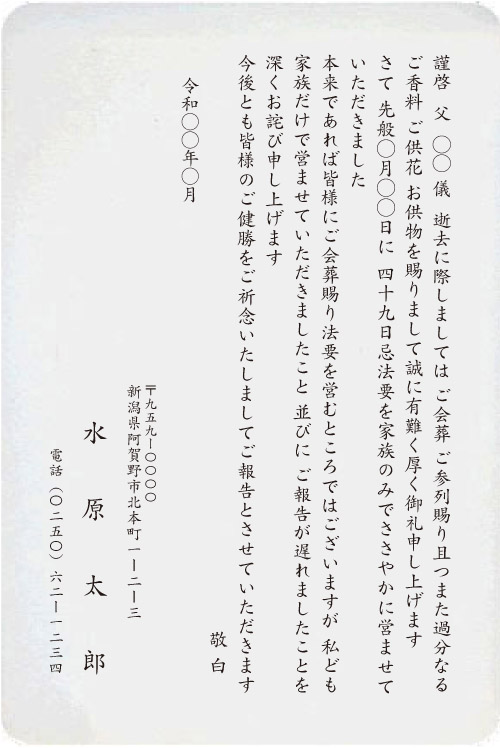 謹啓 父 〇〇 儀 逝去に際しましては ご会葬 ご参列賜り且つまた過分なる
ご香料 ご供花 お供物を賜りまして誠に有難く厚く御礼申し上げます
さて 先般〇月〇〇日に 四十九日忌法要を家族のみでささやかに営ませて
いただきました
本来であれば皆様にご会葬賜り法要を営むところではございますが 私ども
家族だけで営ませていただきましたこと 並びに ご報告が遅れましたことを
深くお詫び申し上げます
今後とも皆様のご健勝をご祈念いたしましてご報告とさせていただきます
敬白
令和〇〇年〇月
〒九五九ー〇〇〇〇
新潟県阿賀野市北本町一ー二ー三
水原太郎
電話(〇二五〇)六二ー一二三四